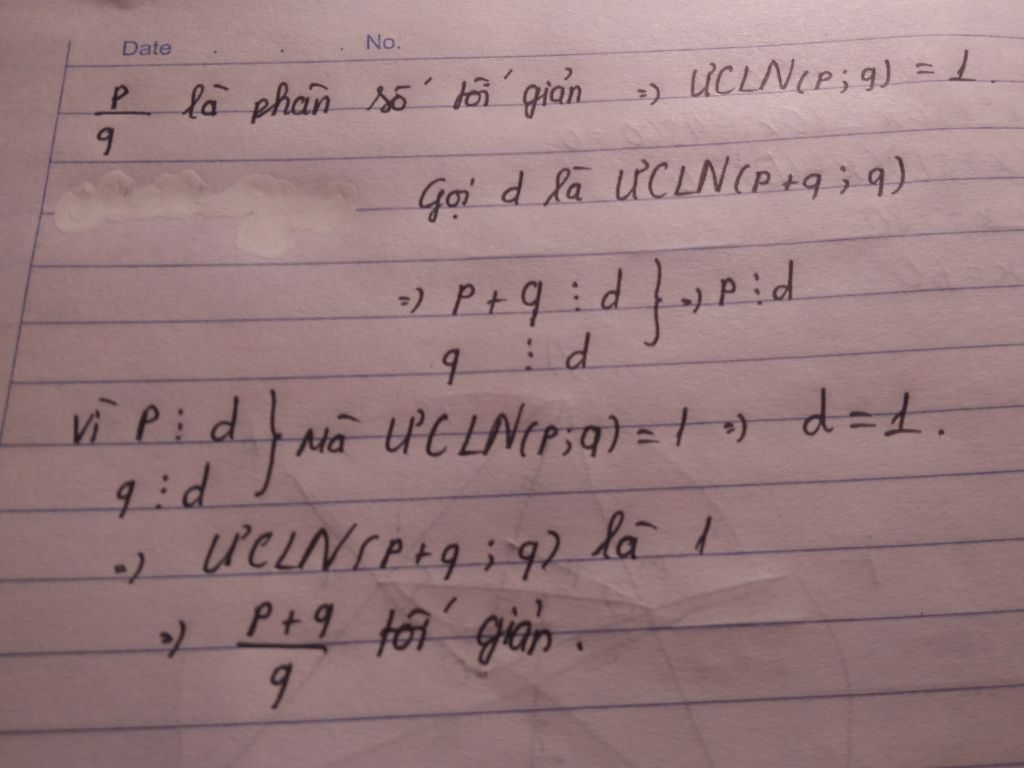 Date . . . No.
p/q là phân số tối giản => ƯCLN(p;q) = 1.
Gọi d là ƯCLN(p+q;q)
=> p+q ⋮ d } => p ⋮ d
q ⋮ d
Vì p ⋮ d } Mà ƯCLN(p;q) = 1 => d = 1.
q ⋮ d
=> ƯCLN(p+q;q) là 1
=> p+q/q tối giản.